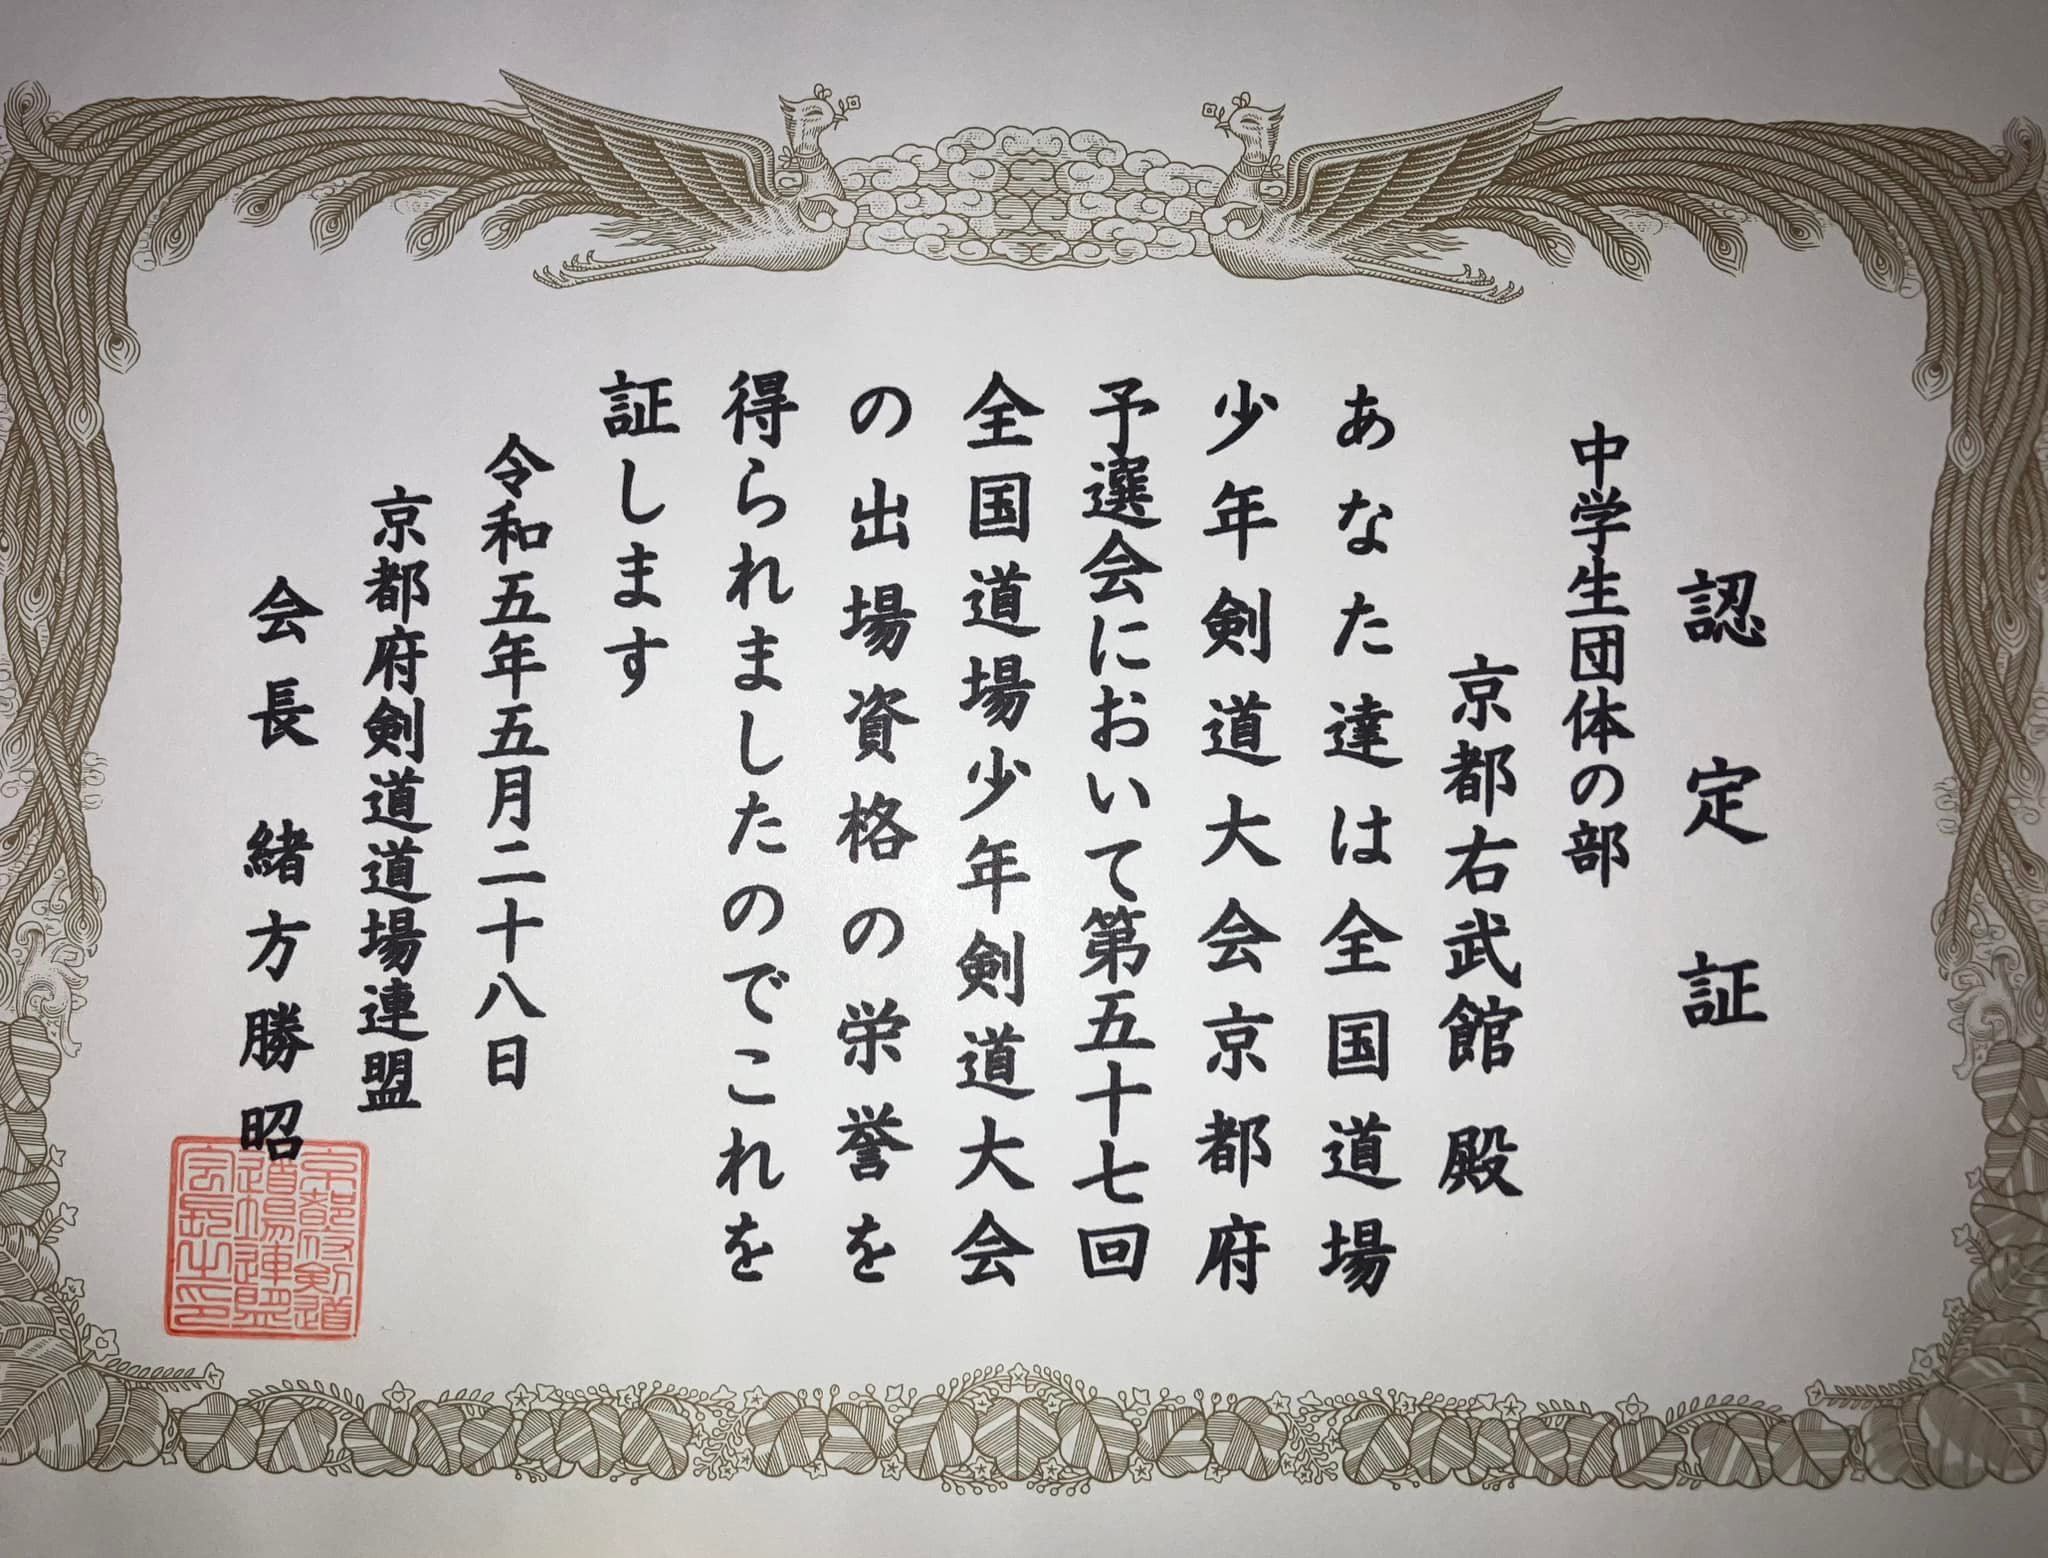 認定証
中学生団体の部
京都右武館 殿
あなた達は全国道場
少年剣道大会京都府
予選会において第五十七回
全国道場少年剣道大会
の出場資格の栄誉を
得られましたのでこれを
証します
令和五年五月二十八日
京都府剣道道場連盟
会長 緒方勝昭
京都府剣道
道場連盟
会長之印